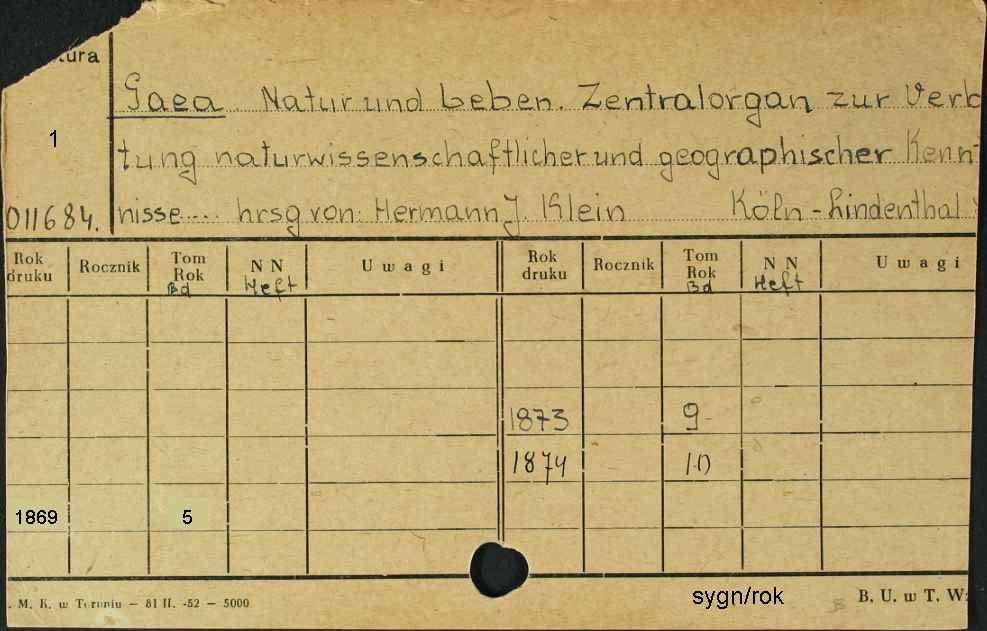 tura
Gaea. Natur und Leben. Zentralorgan zur Verb
1
tung naturwissenschaftlicher und geographischer Kennt
011684. nisse.... hrsg von: Hermann J. Klein Köln - Lindenthal
Rok druku Rocznik Tom Rok Bd N N Heft Uwagi Rok druku Rocznik Tom Rok Bd N N Heft Uwagi
1873 9
1874 10
1869 5
. M. K. w Toruniu — 81 II. -52 — 5000 sygn/rok B. U. w T. W: